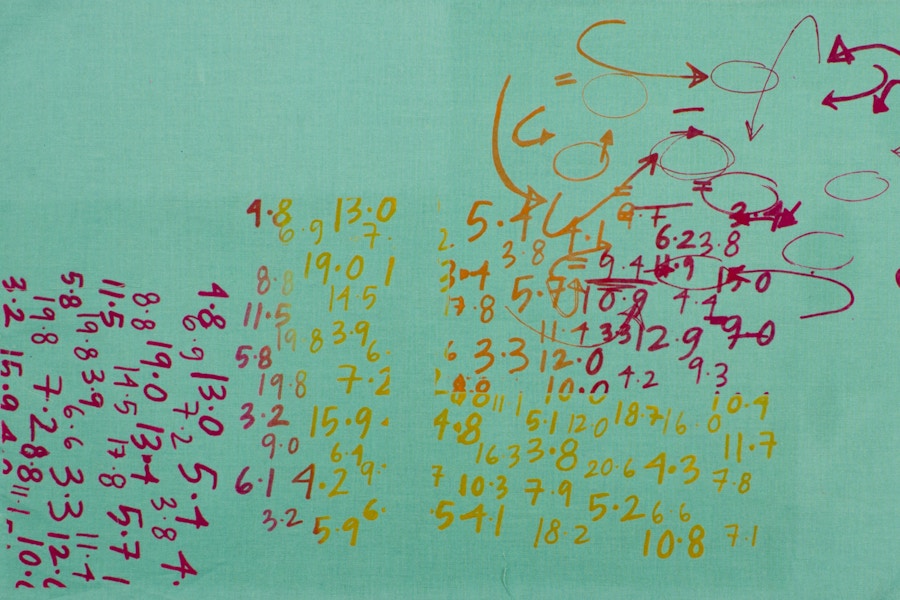 4.8 13.0
6.9 7.
8.8 19.0 1
14.5
11.5
19.8 3.9
5.8 6.
19.8 7.2
3.2 15.9.
9.0 6.4
6.1 4.2 9.
3.2 5.9 6.
=
–
= =
5.4 9.7 2.4
3.8 4.1 6.2 3.8
= 9.4 11.9
3.4 5.7 10.9 4.4
17.8 11.4 3.3 12.9 9.0
6 3.3 12.0
10.0 4.2 9.3
8.8 11 10.9
4.8 5.1 12.0 18.7 16.0
16.3 3.8 11.7
7 10.3 7.9 20.6 4.3 7.8
.5 4.1 5.2 6.6
18.2 10.8 7.1
4.8 13.0 5.4 4.
6.9 7.2 3.8
8.8 19.0 13.4
11.5 14.5 17.8 5.7 1
19.8 3.9 6.6 11.4
5.8 3.3 12.
19.8 7.2 8.8 11.1 10.
3.2 15.9 4.